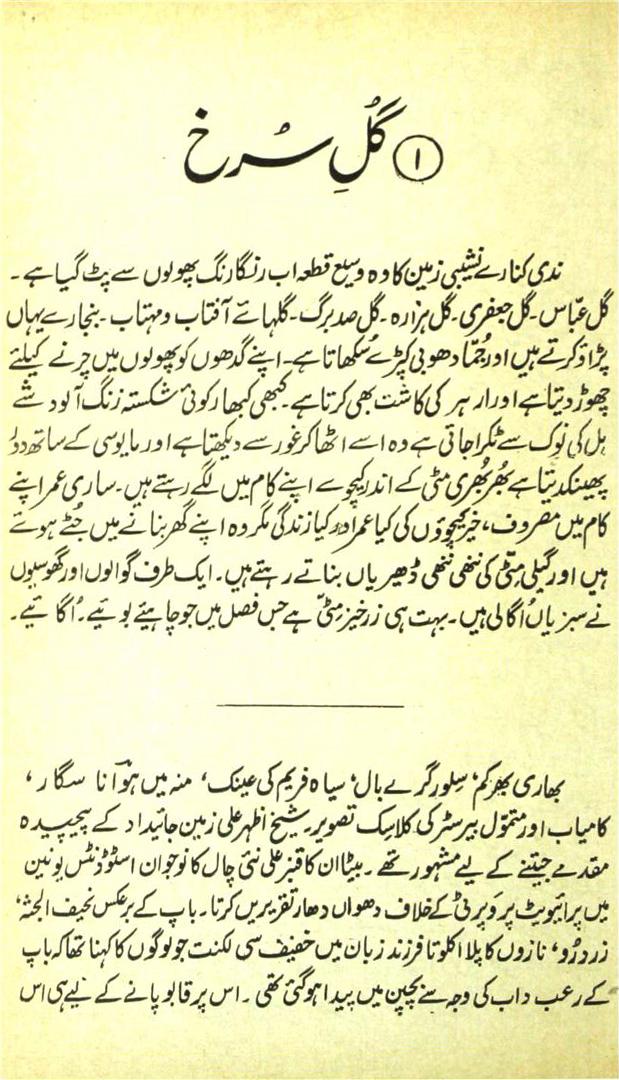 ۱ گُلِ سُرخ
ندی کنارے نشیبی زمین کا وہ وسیع قطعہ اب رنگارنگ پھولوں سے پٹ گیا ہے۔
گل عبّاس۔ گل جعفری۔ گل ہزارہ۔ گل صد برگ۔ گلہائے آفتاب و مہتاب۔ بنجارے یہاں
پڑاؤ کرتے ہیں اور جُمّا دھوبی کپڑے سُکھاتا ہے۔ اپنے گدھوں کو پھولوں میں چرنے کیلئے
چھوڑ دیتا ہے اور ارہر کی کاشت بھی کرتا ہے۔ کبھی کبھار کوئی شکستہ زنگ آلود شے
ہل کی نوک سے ٹکرا جاتی ہے وہ اسے اٹھا کر غور سے دیکھتا ہے اور مایوسی کے ساتھ دور
پھینکدیتا ہے بُھر بُھری مٹی کے اندر کیچوے اپنے کام میں لگے رہتے ہیں۔ ساری عمر اپنے
کام میں مصروف، خیر کیچوؤں کی کیا عمر اور کیا زندگی مگر وہ اپنے گھر بنانے میں جُٹے ہوئے
ہیں اور گیلی مٹّی کی ننھی ننھی ڈھیریاں بناتے رہتے ہیں۔ ایک طرف گوالوں اور گھوسیوں
نے سبزیاں اُگالی ہیں۔ بہت ہی زرخیز مٹّی ہے جس فصل میں جو چاہیئے بوئیے۔ اُگائیے۔
بھاری بھرکم، سِلور گرے بال، سیاہ فریم کی عینک، منہ میں ہوآنا سگار،
کامیاب اور متموّل بیرسٹر کی کلاسِک تصویر۔ شیخ اظہر علی زمین جائیداد کے پیچیدہ
مقدمے جیتنے کے لیے مشہور تھے۔ بیٹا ان کا قنبر علی نئی چال کا نوجوان اسٹوڈنٹس یونین
میں پرائیویٹ پروپرٹی کے خلاف دھواں دھار تقریریں کرتا۔ باپ کے برعکس نحیف الجثہ،
زرد رُو، نازوں کا پلا اکلوتا فرزند زبان میں خفیف سی لکنت جو لوگوں کا کہنا تھا کہ باپ
کے رعب داب کی وجہ سے بچپن میں پیدا ہو گئی تھی۔ اس پر قابو پانے کے لیے ہی اس